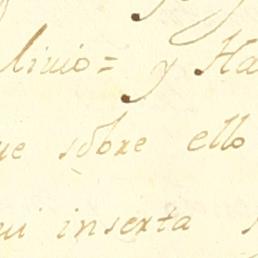 livio= y Ha
ue sobre ello
ui inserta